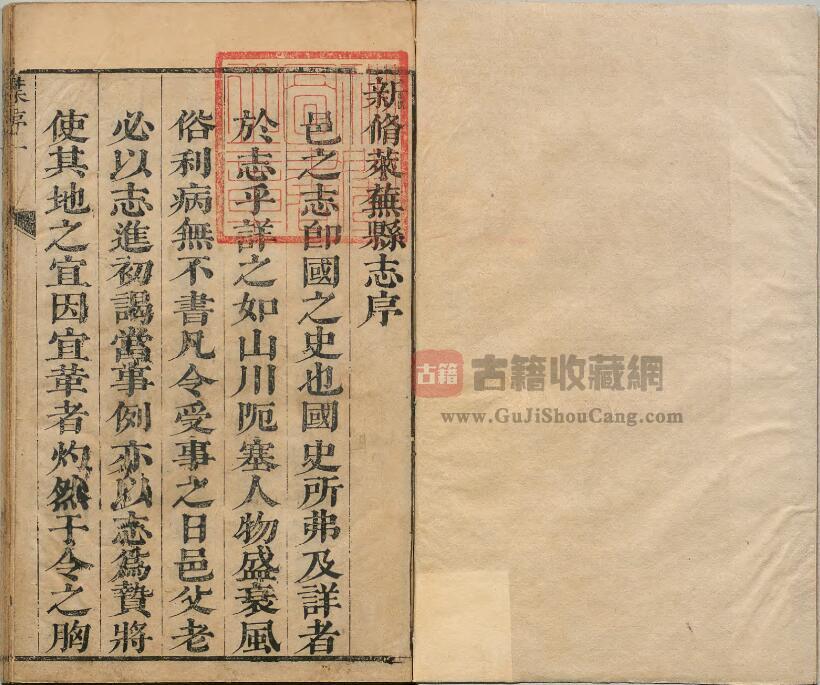 新脩萊蕪縣志序
邑之志卽國之史也國史所弗及詳者
於志乎詳之如山川阨塞人物盛衰風
俗利病無不書凡令受事之日邑父老
必以志進初謁當事例亦以志爲贄將
使其地之宜因宜革者灼然于令之胸
葉序一
古籍
古籍收藏網
www.GuJiShouCang.com